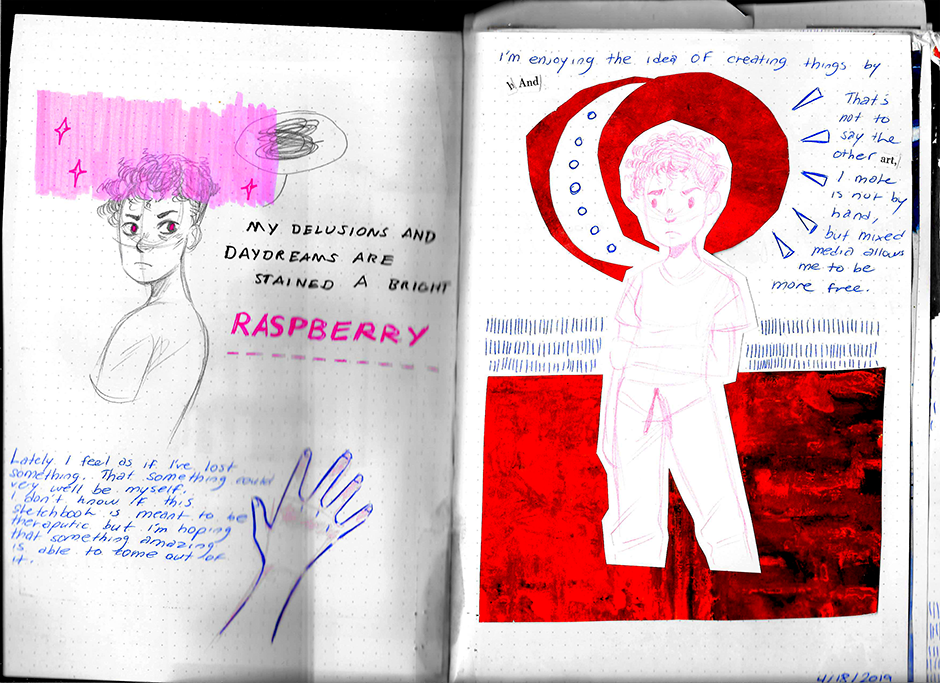 MY DELUSIONS AND
DAYDREAMS ARE
STAINED A BRIGHT
RASPBERRY
Lately I feel as if I've lost
something. That something could
very well be myself.
I don't know if this
sketchbook is meant to be
theraputic but i'm hoping
that something amazing
is able to come out of
it.
I'm enjoying the idea of creating things by
h And
That's
not to
say the
other art,
I make
is not by
hand,
but mixed
media allows
me to be
more free.
4/18/2019